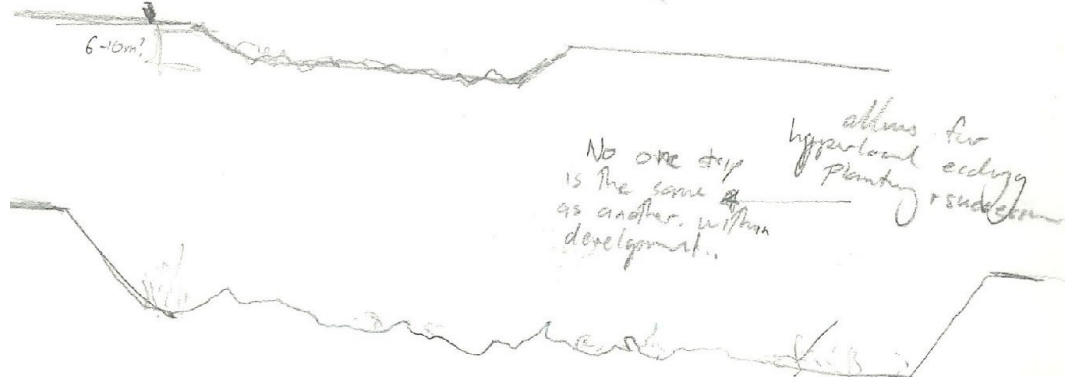 6-10m?
No one step
is the same
as another. within
development..
allows for
hyperlocal ecology
planting + succession